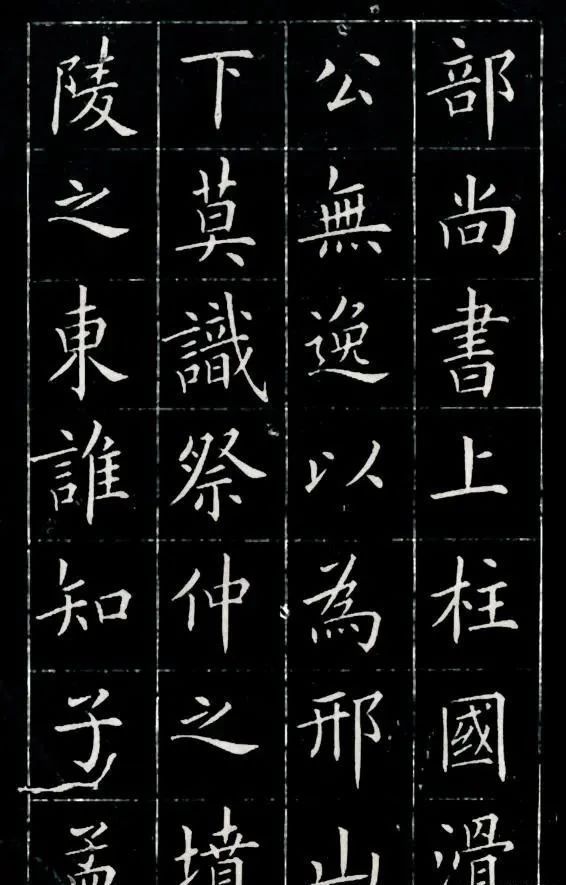 部尚書上柱國滑
公無逸以為邢山
下莫識祭仲之墳
陵之東誰知子孟